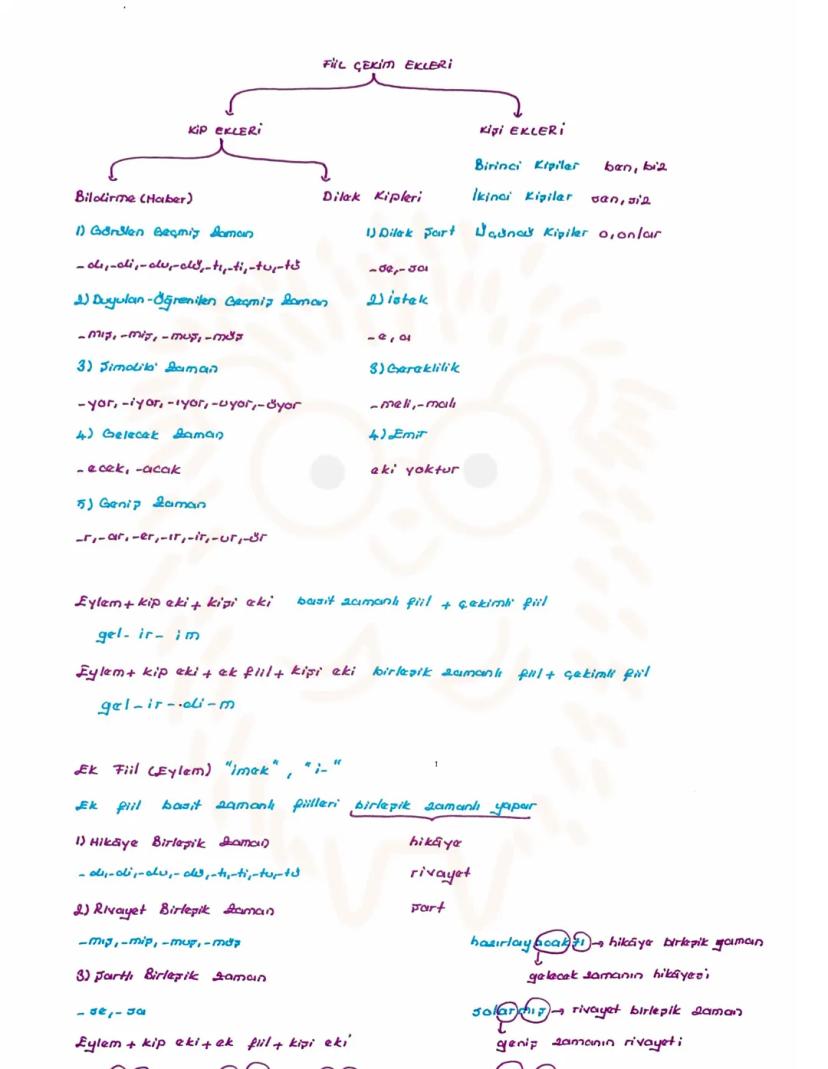 FİİL ÇEKİM EKLERİ
KİP EKLERİ
KİŞİ EKLERİ
Birinci Kişiler ben, biz
Bildirme (Haber) Dilek Kipleri İkinci Kişiler sen, siz
1) Görülen Geçmiş Zaman 1) Dilek Şart Üçüncü Kişiler o, onlar
-dı,-di,-du,-dü,-tı,-ti,-tu,-tü -se,-sa
2) Duyulan-Öğrenilen Geçmiş Zaman 2) İstek
-mış, -miş, -muş, -müş -e, a
3) Şimdiki Zaman 3) Gereklilik
-yor, -iyor, -ıyor, -uyor, -üyor -meli, -malı
4) Gelecek Zaman 4) Emir
-ecek, -acak eki yoktur
5) Geniş Zaman
-r,-ar,-er,-ır,-ir,-ur,-ür
Eylem + kip eki + kişi eki basit zamanlı fiil + çekimli fiil
gel- ir- im
Eylem + kip eki + ek fiil + kişi eki birleşik zamanlı fiil + çekimli fiil
gel-ir-di-m
Ek Fiil (Eylem) "imek", "i-"
Ek fiil basit zamanlı fiilleri birleşik zamanlı yapar
1) Hikâye Birleşik Zaman hikâye
-dı,-di,-du,-dü,-tı,-ti,-tu,-tü rivayet
2) Rivayet Birleşik Zaman şart
-mış, -miş, -muş, -müş hazırlayacaktı → hikâye birleşik zaman
3) Şartlı Birleşik Zaman gelecek zamanın hikâyesi
-se, -sa solarmış → rivayet birleşik zaman
Eylem + kip eki + ek fiil + kişi eki geniş zamanın rivayeti